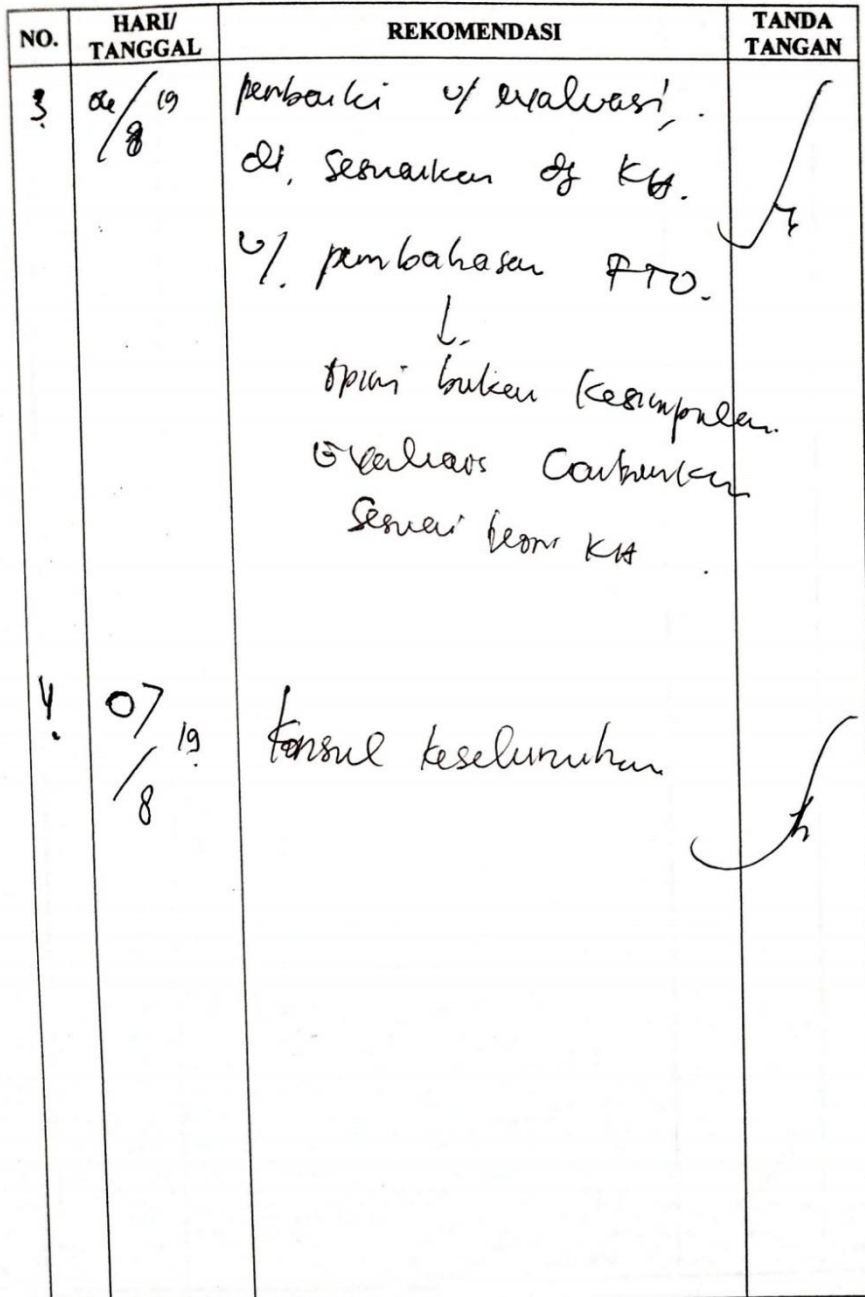 NO. HARI/ TANGGAL REKOMENDASI TANDA TANGAN
3. 06/8 19 perbaiki u/ evaluasi,
di, sesuaikan dg KH.
u/. pembahasan FTO.
↓
opini bukan kesimpulan.
Evaluasi Cantumkan
Sesuai KH
4. 07/8 19. konsul keseluruhan